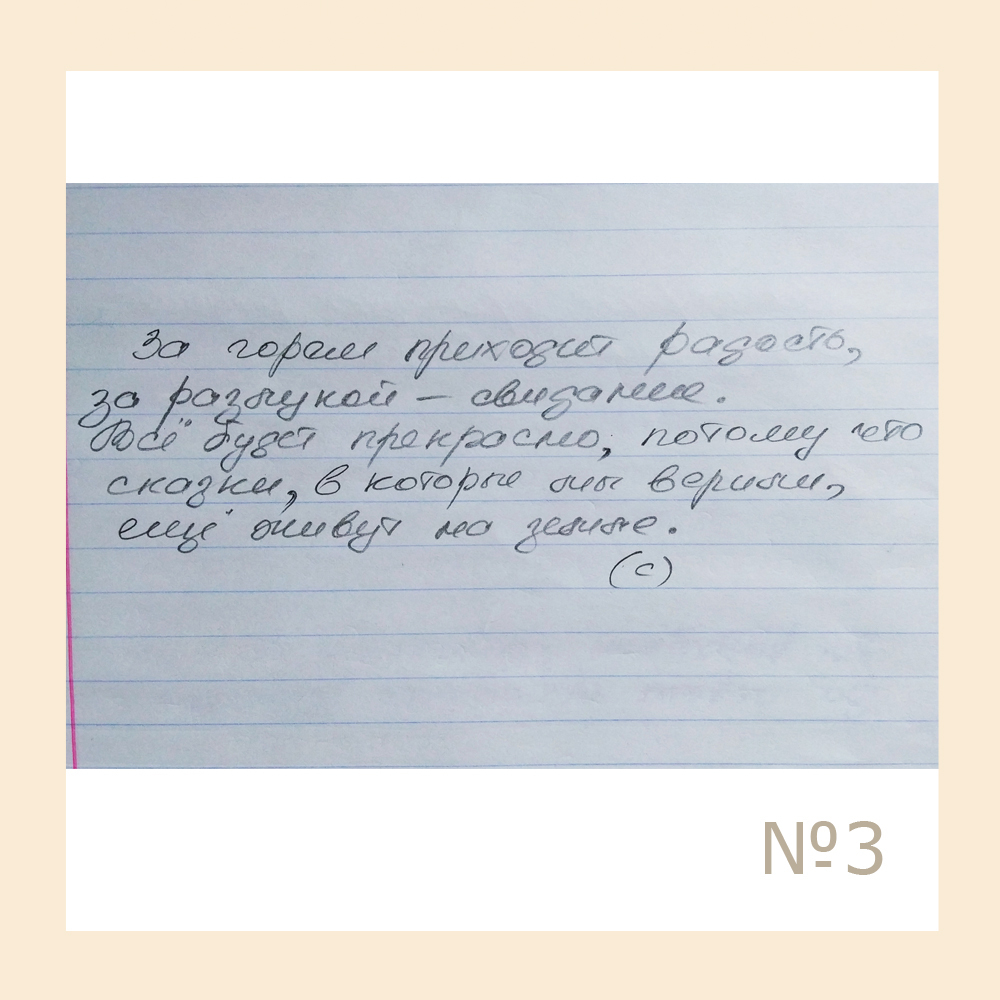 За горем приходит радость,
за разлукой – свидание.
Всё будет прекрасно, потому что
сказки, в которые мы верим,
ещё живут на земле.
(с)
№3